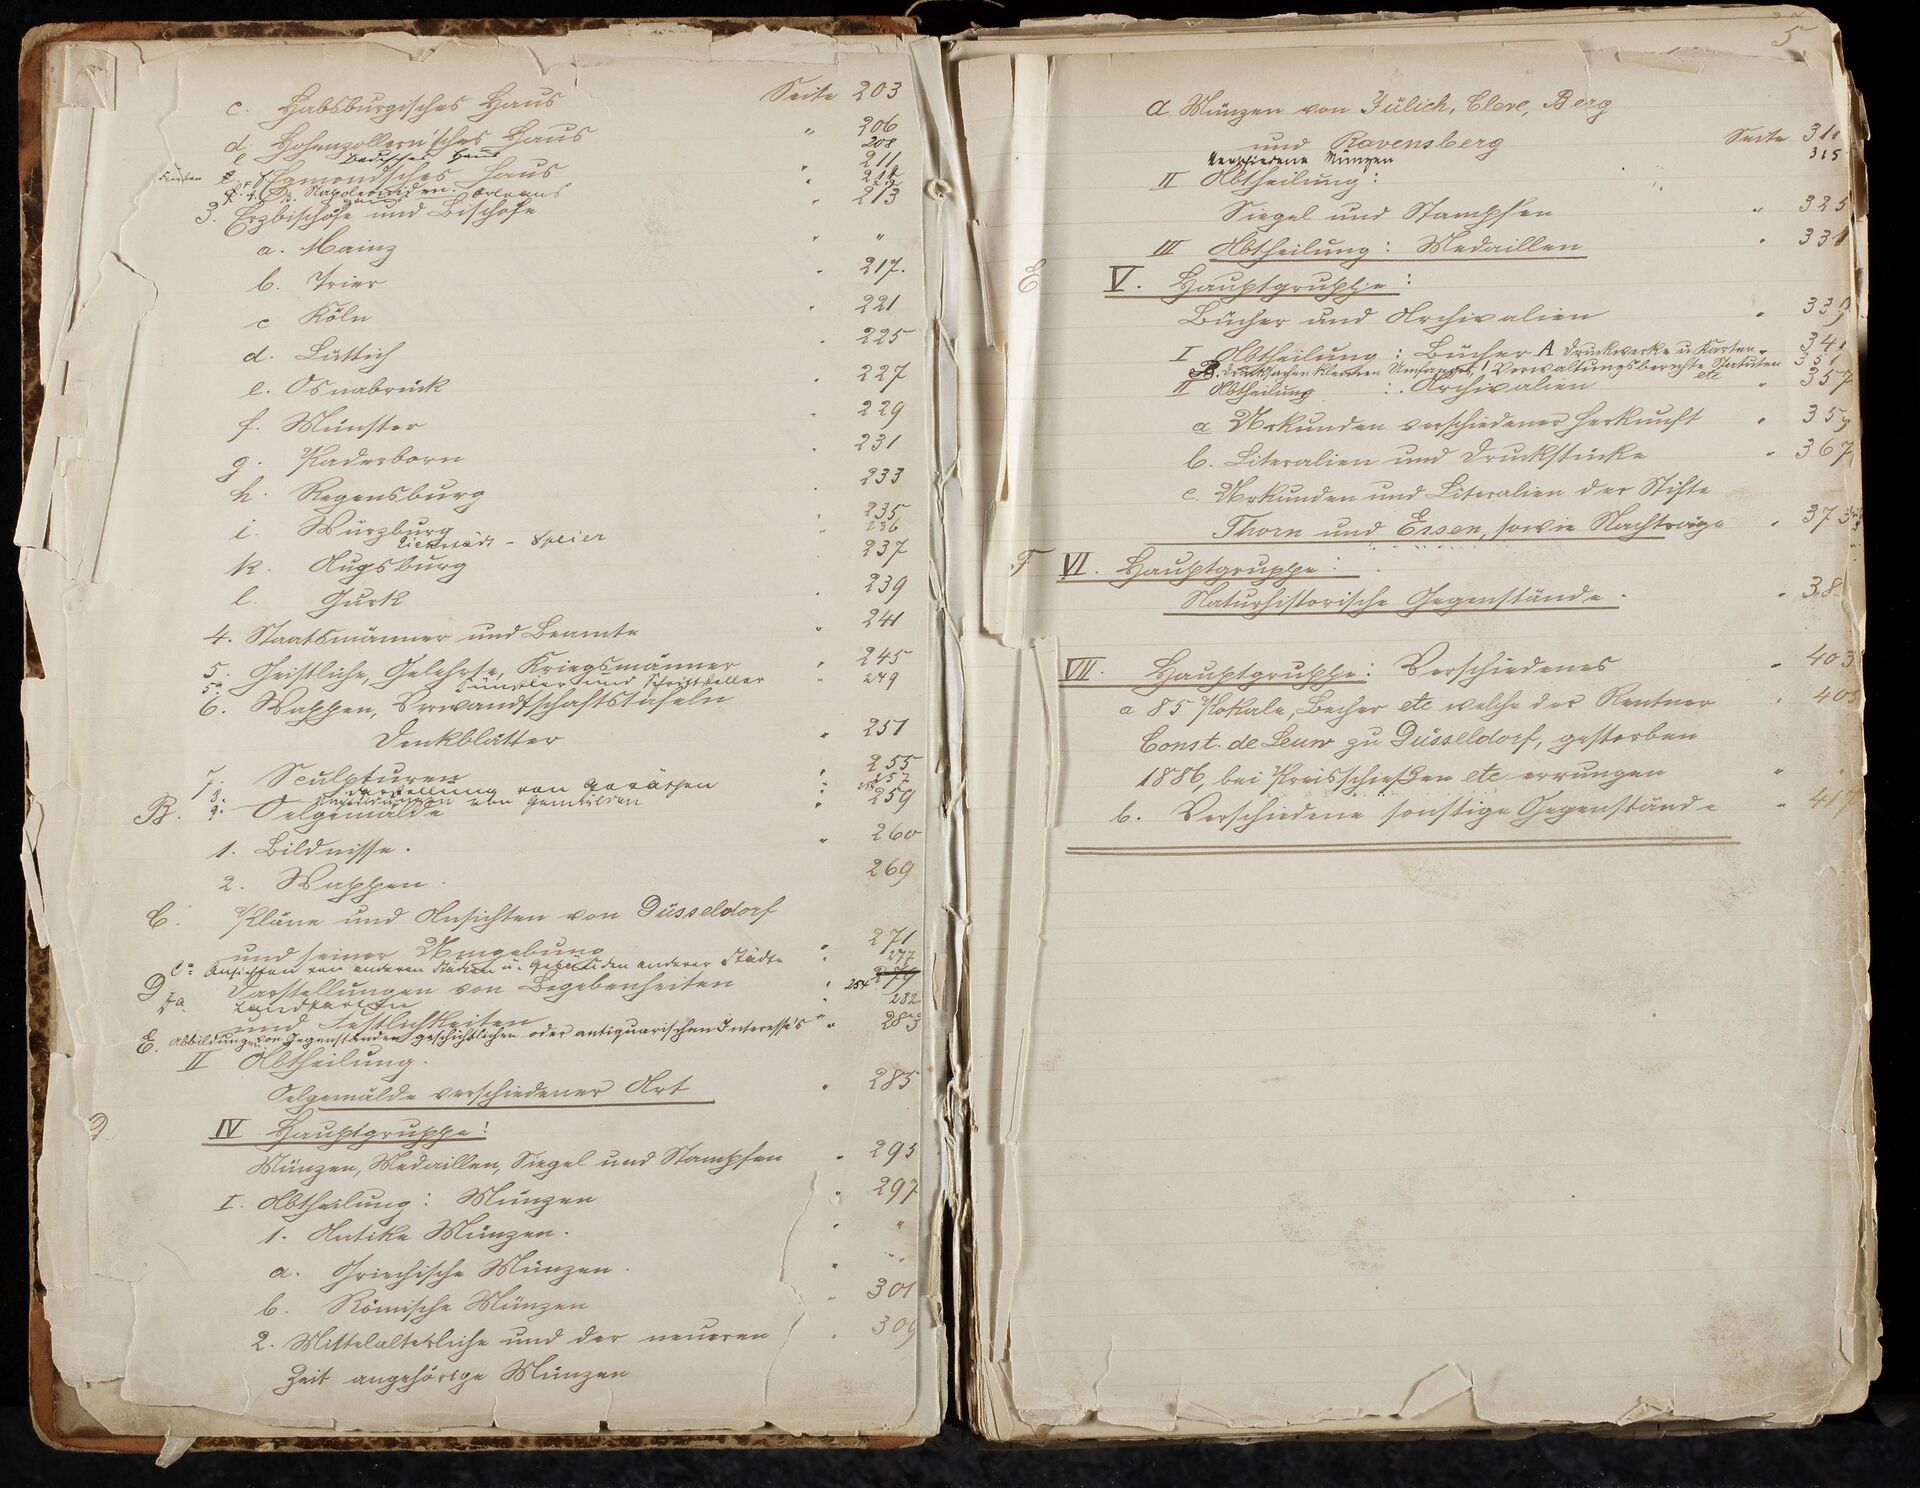 c. Habsburgisches Haus Seite 203
d. Hohenzollern'sches Haus " 206
e Badisches Haus 208
f. Egmondsches Haus " 211
Napoleoniden. Orleans
3. Erzbischöfe und Bischöfe " 213
a. Mainz " "
b. Trier " 217.
c Köln " 221
d. Lüttich " 225
e. Osnabrück " 227
f. Münster " 229
g. Paderborn " 231
h. Regensburg " 233
i. Würzburg " 235
Eichstädt - Speier " 236
k. Augsburg " 237
l. Gurk " 239
4. Staatsmänner und Beamte " 241
5. Geistliche, Gelehrte, Kriegsmänner " 245
5a Künstler und Schriftsteller " 249
6. Wappen, Verwandtschaftstafeln
Denkblätter " 251
7. Sculpturen " 255
8. Darstellung von Geräthen " 257
9. Nachbildungen von Gemälden "
B. Oelgemälde " 259
1. Bildnisse. " 260
2. Wappen. 269
C. Pläne und Ansichten von Düsseldorf
und seiner Umgebung " 271
Ca Ansichten von anderen Städten u. Gebäuden anderer Städte " 277
D Darstellungen von Begebenheiten " 254 279
Da Landkarten " 282
und Festlichkeiten
E. Abbildungen von Gegenständen geschichtlichen oder antiquarischen Interesse's " 283
II Abtheilung.
Oelgemälde verschiedener Art " 285
D.
IV Hauptgruppe!
Münzen, Medaillen, Siegel und Stampfen " 295
I. Abtheilung: Münzen " 297
1. Antike Münzen. " "
a. Griechische Münzen. " "
b. Römische Münzen " 301
2. Mittelalterliche und der neueren " 309
Zeit angehörige Münzen
5
a Münzen von Jülich, Cleve, Berg
und Ravensberg Seite 311
Verschiedene Münzen 315
II Abtheilung:
Siegel und Stampfen " 325
III Abtheilung: Medaillen " 331
E V. Hauptgruppe:
Bücher und Archivalien " 339
I Abtheilung: Bücher A Druckwerke u Karten " 341
B. Drucksachen kleineren Umfanges! Verwaltungsberichte Statuten etc 351
II Abtheilung: Archivalien " 357
a Urkunden verschiedener Herkunft " 359
b. Literalien und Druckstücke " 367
c. Urkunden und Literalien der Stifte
Thorn und Essen, sowie Nachträge " 373
F VI. Hauptgruppe:
Naturhistorische Gegenstände. " 38
VII. Hauptgruppe: Verschiedenes " 403
a 85 Pokale, Becher etc welche der Rentner " 405
Const. de Leuw zu Düsseldorf, gestorben
1886, bei Preisschießen etc errungen "
b. Verschiedene sonstige Gegenstände " 417